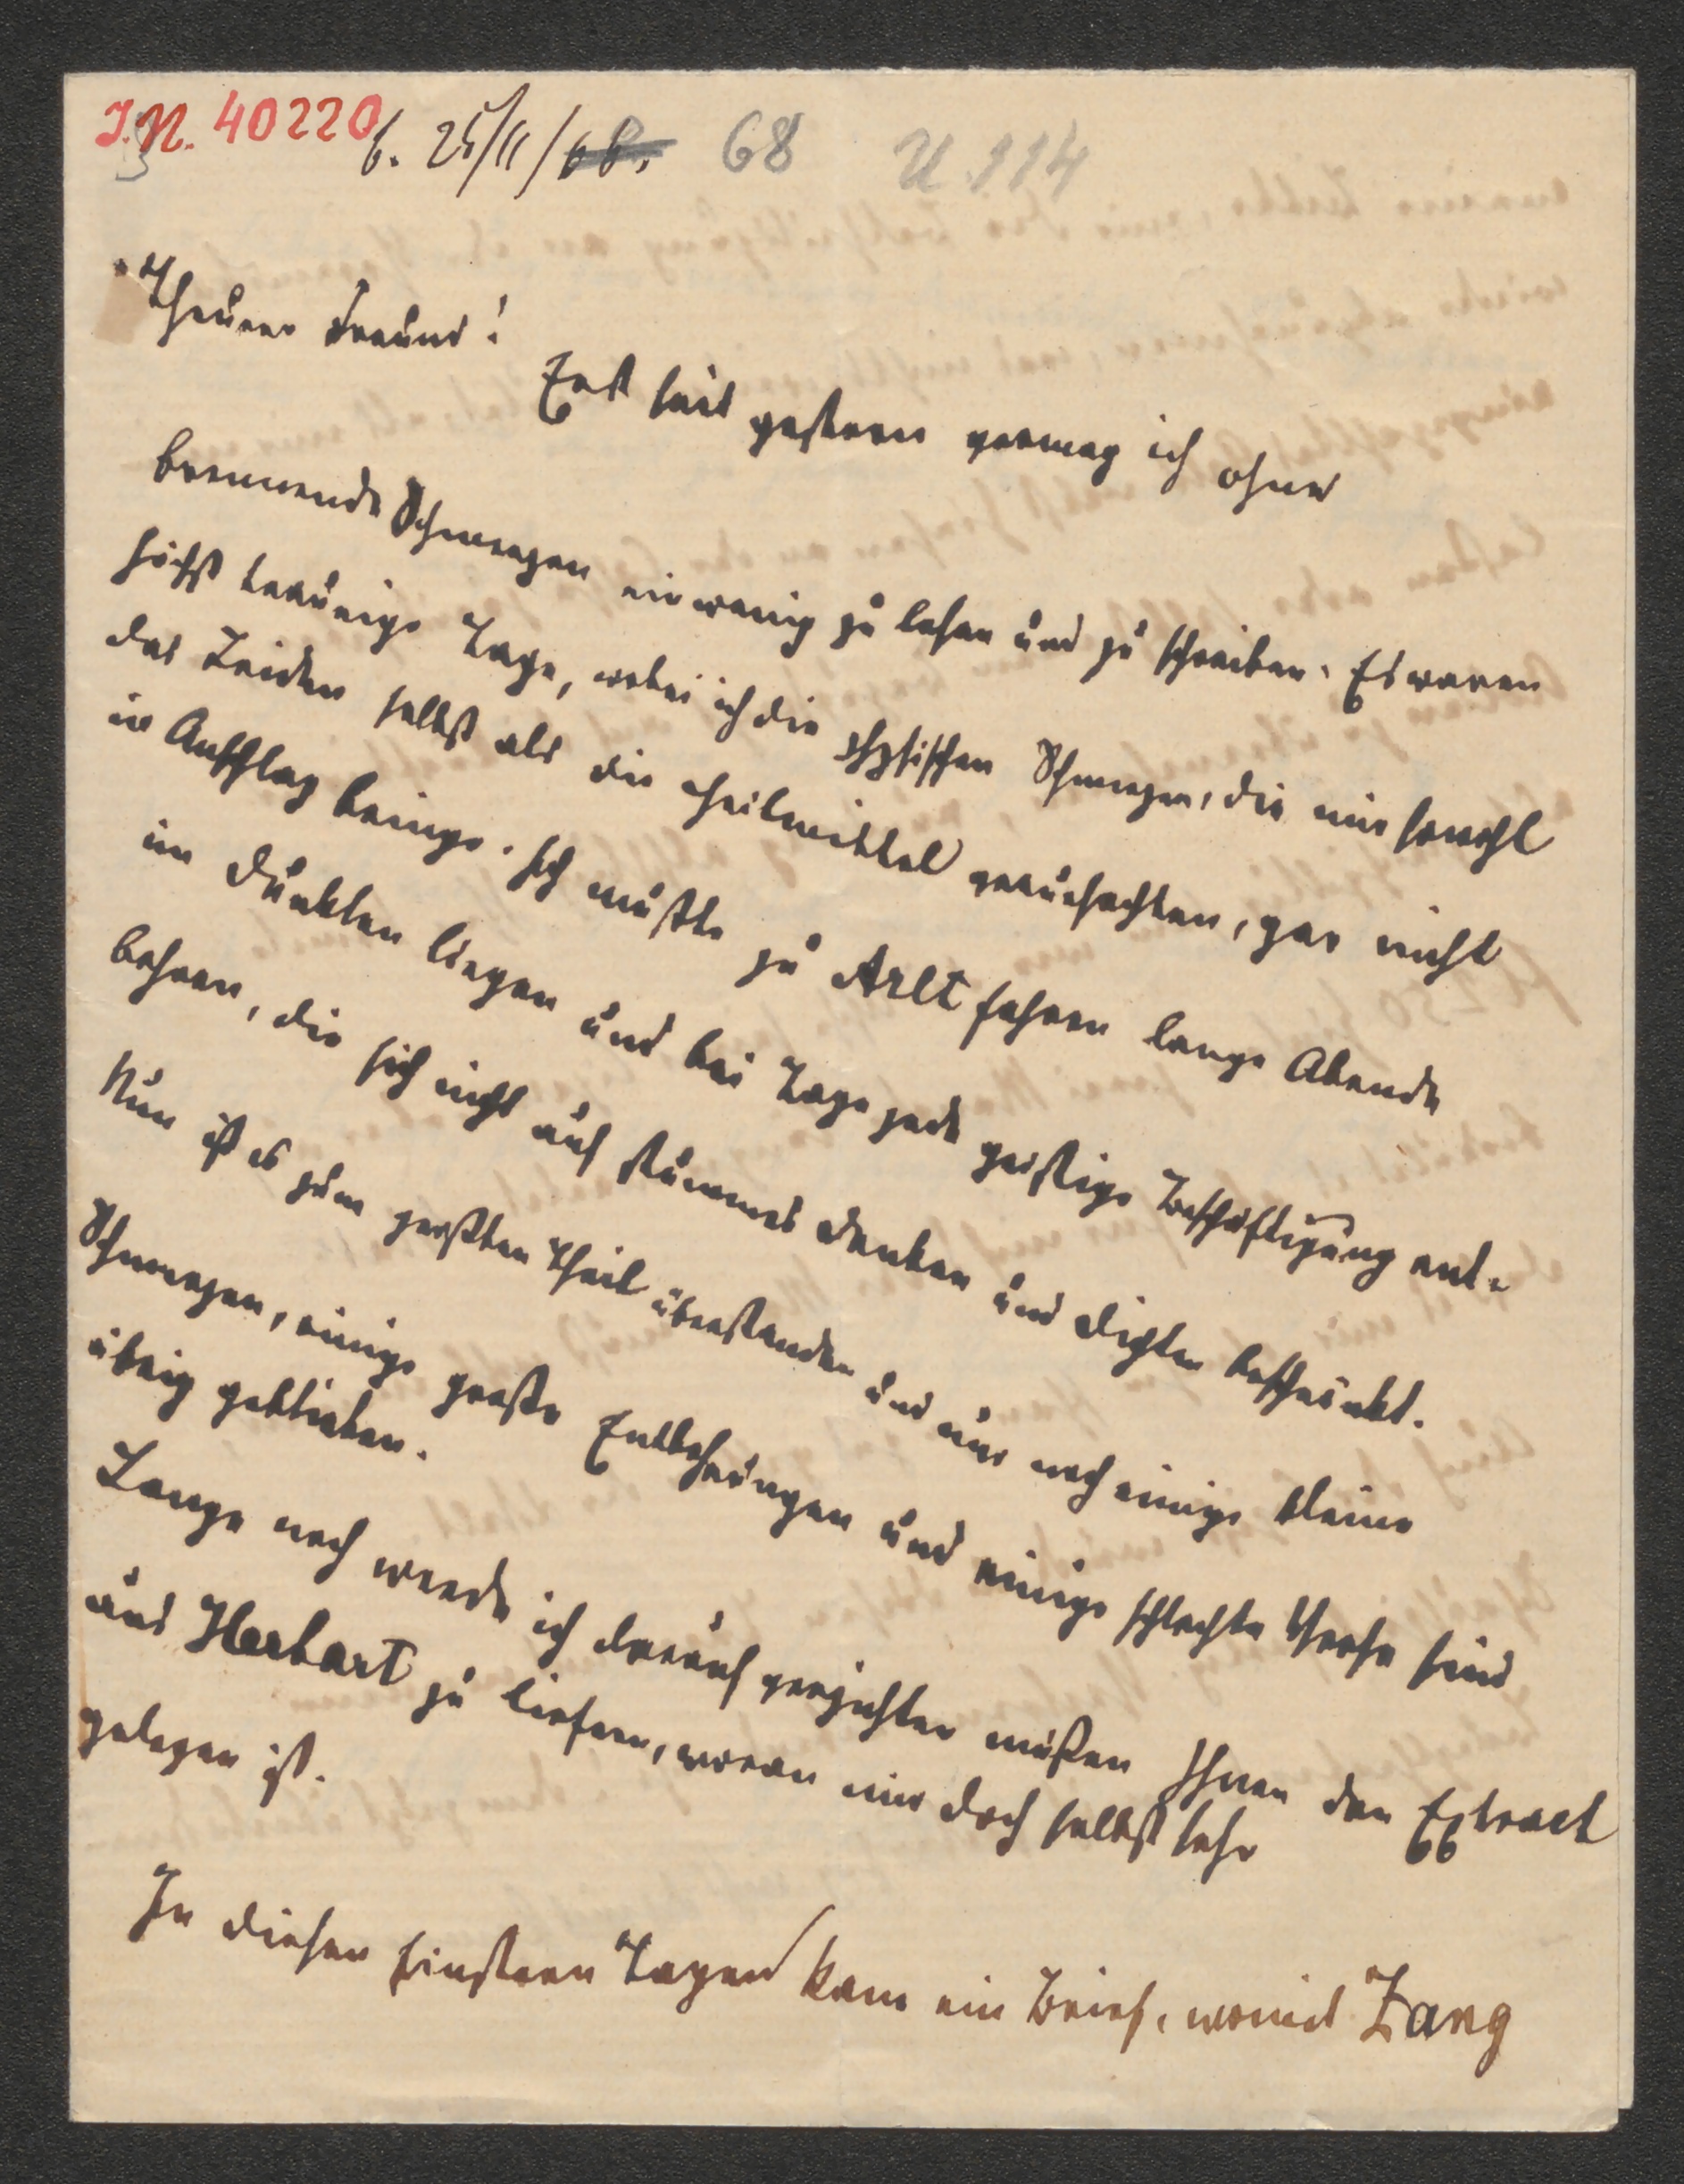 I.N. 40220
b. 25/11/68. 68 U.114
Theurer Freund!
Erst seit gestern vermag ich ohne
brennende Schmerzen ein wenig zu lesen und zu schreiben. Es waren
höchst traurige Tage, wobei ich die physischen Schmerzen, die mir sowohl
das Leiden selbst als die Heilmittel verursachten, gar nicht
in Anschlag bringe. Ich mußte zu Arlt fahren lange Abende
im Dunklen liegen und bei Tage jede geistige Beschäftigung ent-
behren, die sich nicht auf stummes Denken und Dichten beschränkt.
Nun ist es zum größten Theil überstanden und nur noch einige kleine
Schmerzen, einige große Entbehrungen und einige schlechte Verse sind
übrig geblieben.
Lange noch werde ich darauf verzichten müßen Ihnen den Extract
aus Herbart zu liefern, woran mir doch selbst sehr
gelegen ist.
In diesen finstern Tagen kam ein Brief, womit Zang